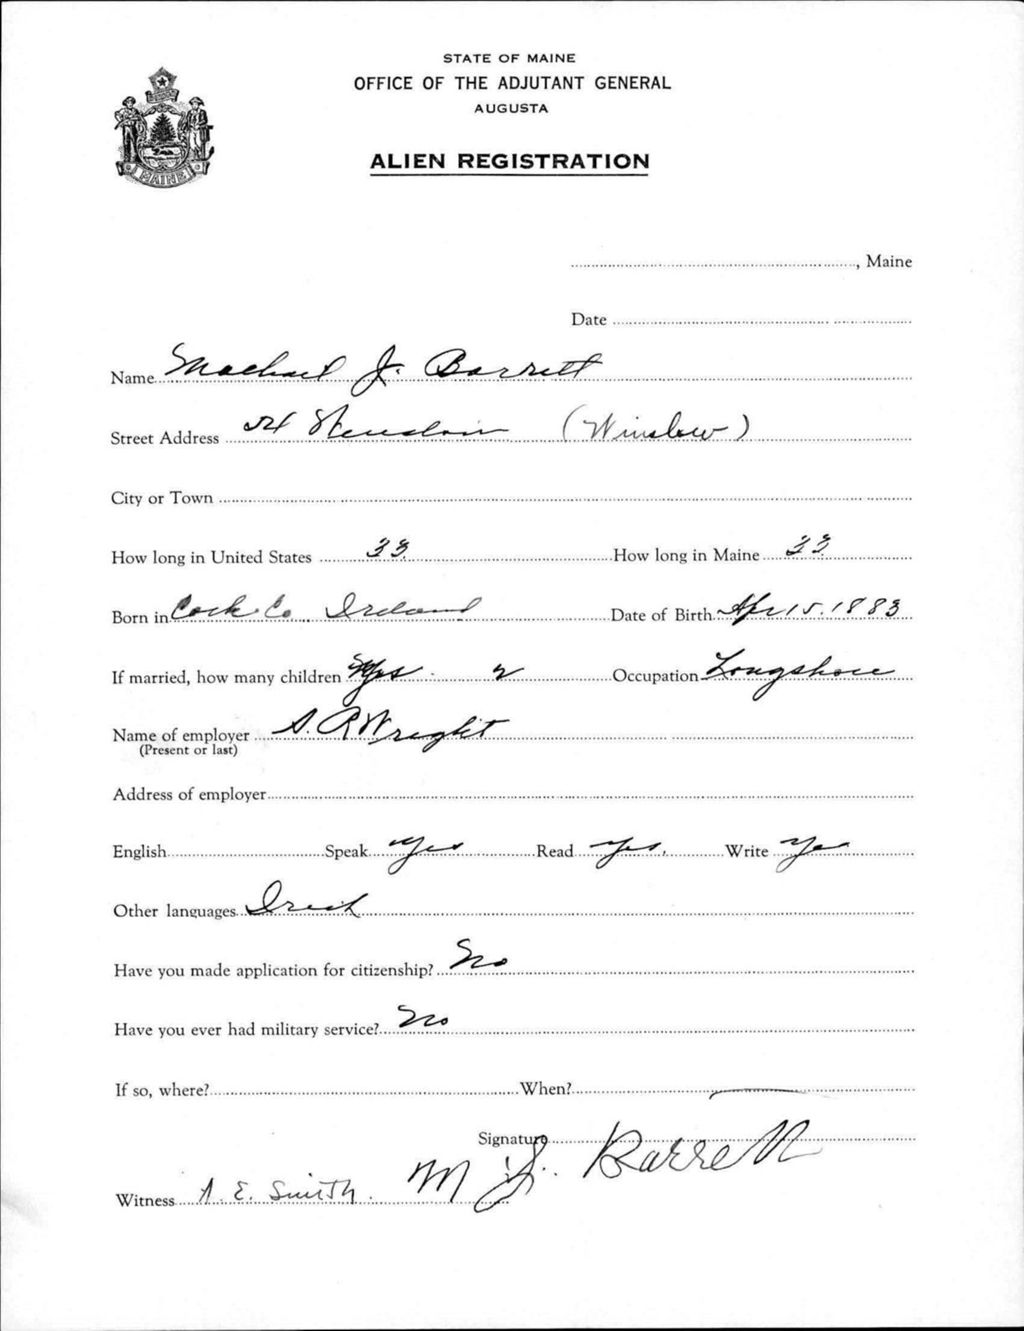 STATE OF MAINE
OFFICE OF THE ADJUTANT GENERAL
AUGUSTA
ALIEN REGISTRATION
MAINE
, Maine
Date
Name Michael J. Barrett
Street Address (Winslow)
City or Town
How long in United States 33 How long in Maine 33
Born in Cork Co. Ireland Date of Birth Apr 15. 1883
If married, how many children Yes - 2 Occupation Longshore
Name of employer A. R Wright
(Present or last)
Address of employer
English Speak Yes Read Yes. Write Yes
Other languages Irish
Have you made application for citizenship? No
Have you ever had military service? No
If so, where? When?
Signature M J. Barrett
Witness A. E. Smith.